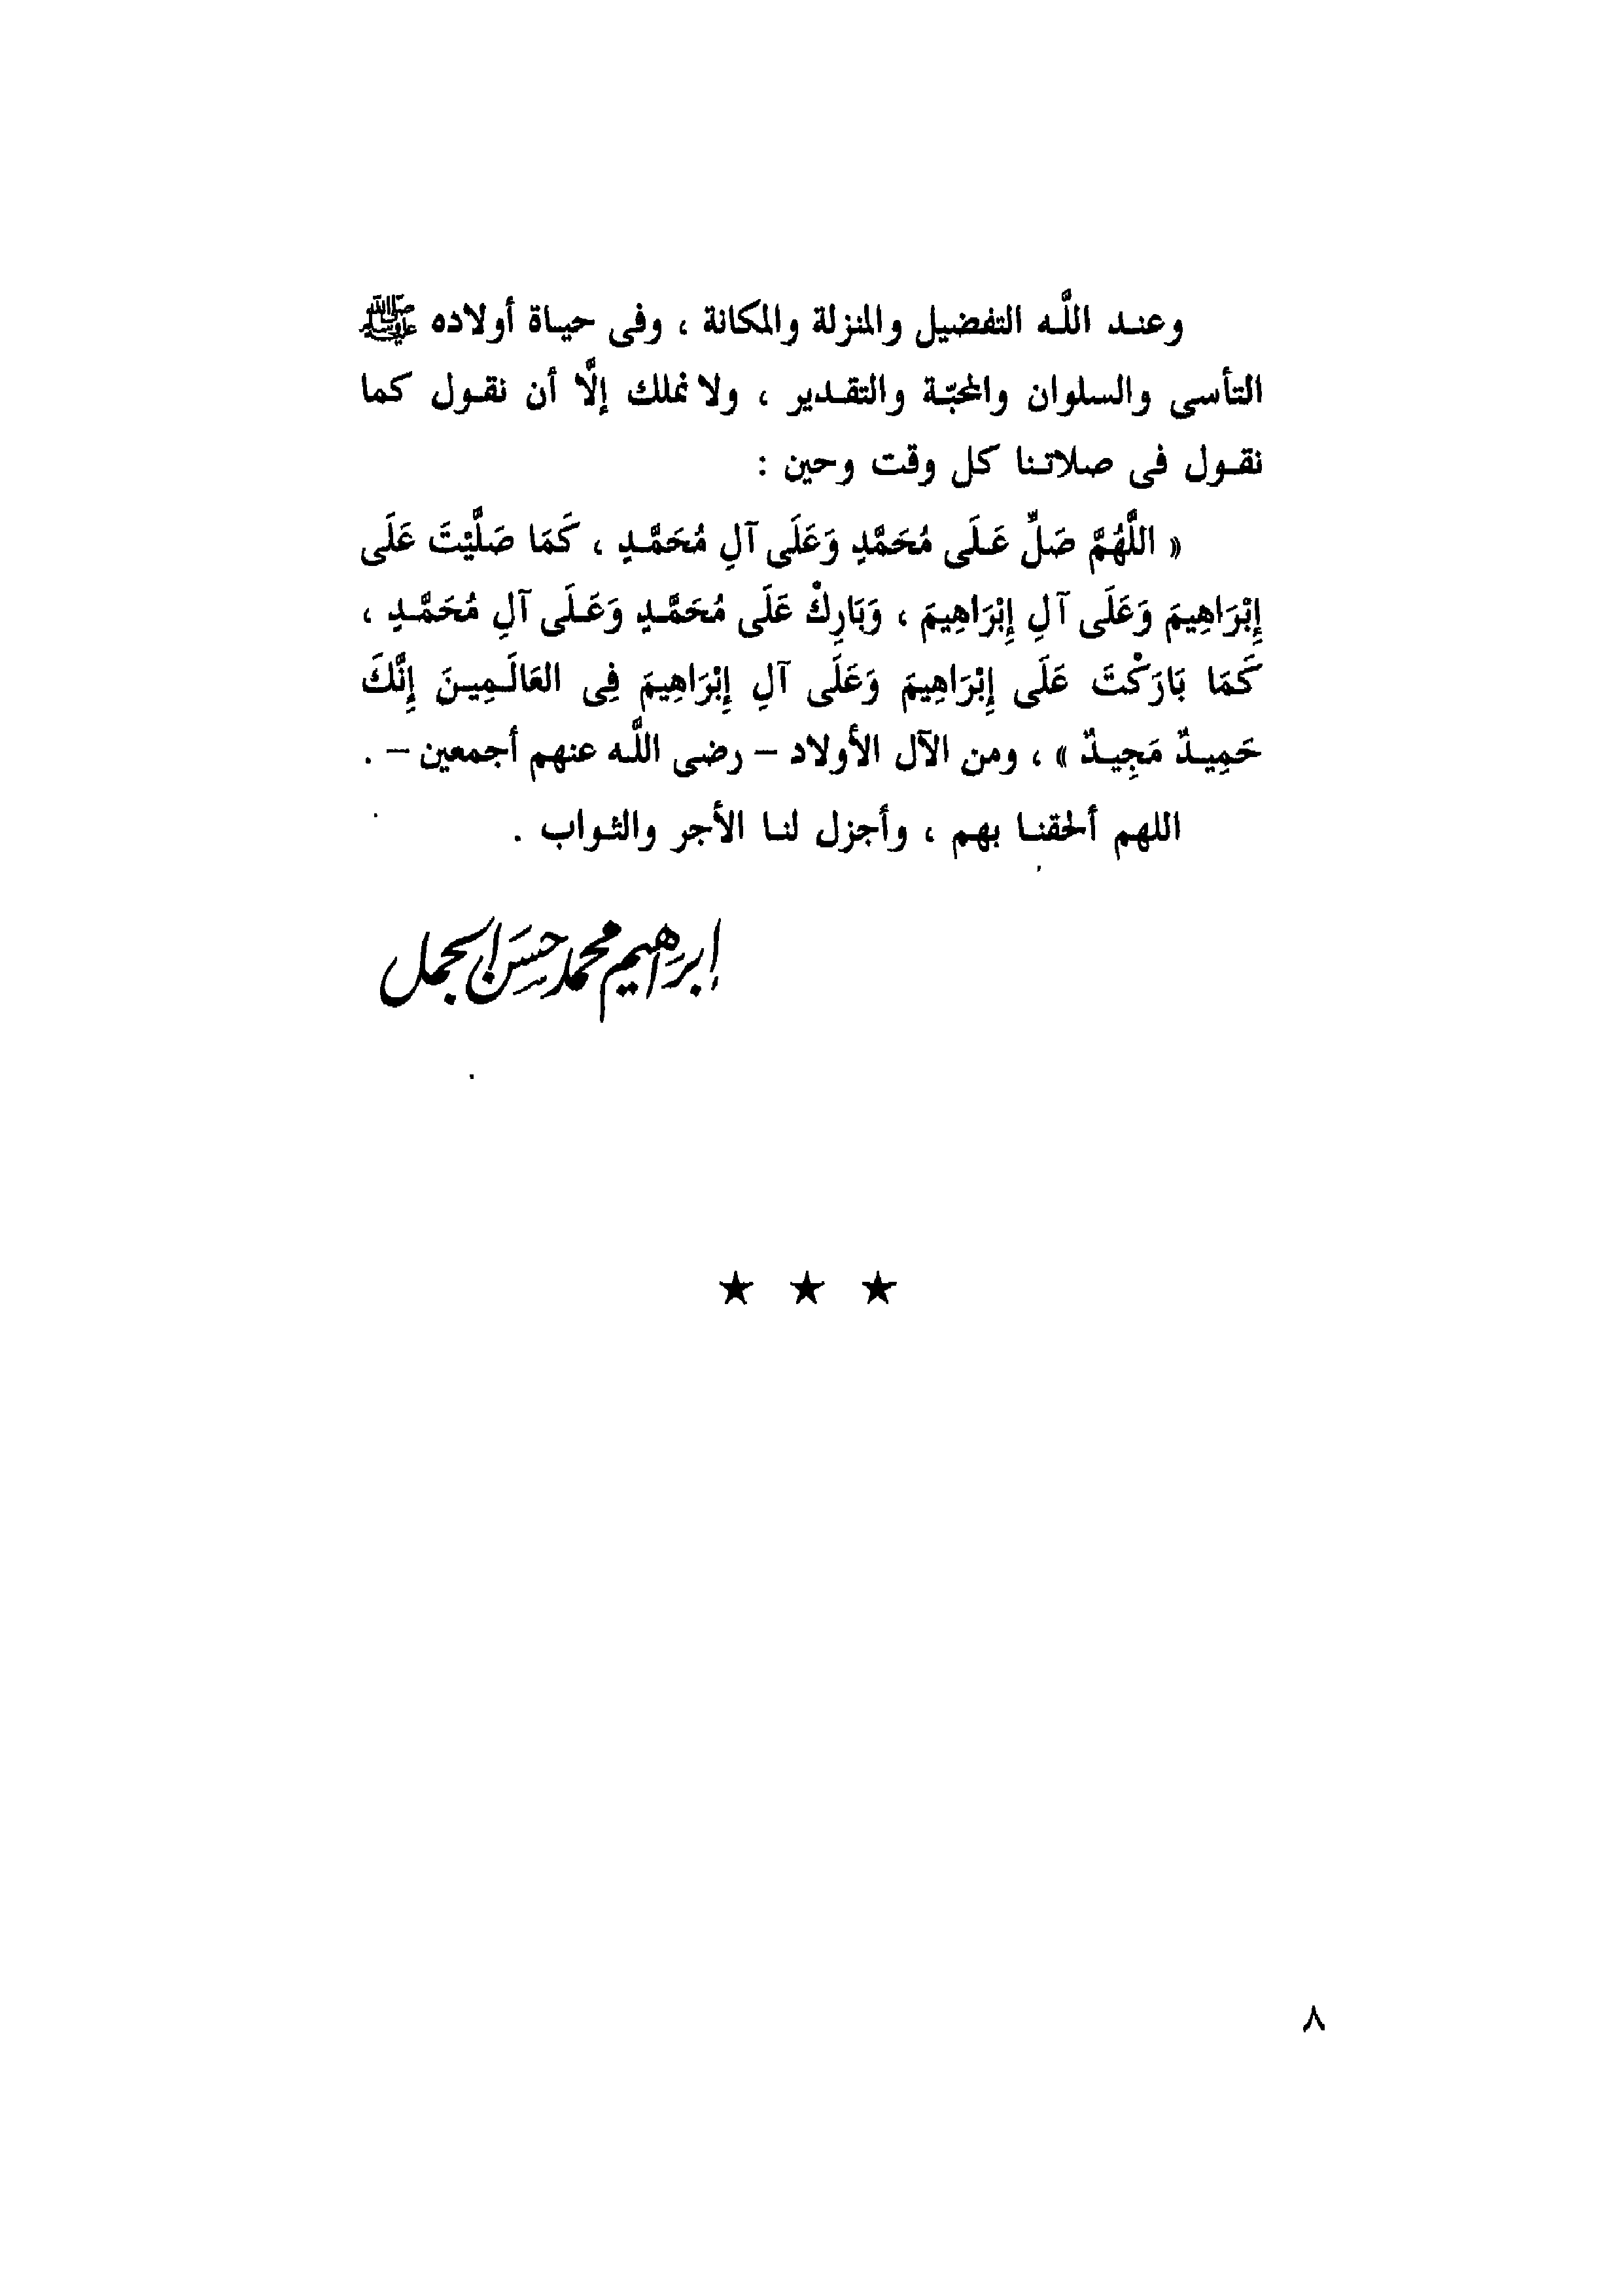 وعند اللَّه التفضيل والمنزلة والمكانة ، وفى حياة أولاده ﷺ
التأسى والسلوان والمحبّة والتقدير ، ولا نملك إلَّا أن نقول كما
نقول فى صلاتنا كل وقت وحين :
« اللَّهُمَّ صَلِّ عَلَى مُحَمَّدٍ وَعَلَى آلِ مُحَمَّدٍ ، كَمَا صَلَّيْتَ عَلَى
إِبْرَاهِيمَ وَعَلَى آلِ إِبْرَاهِيمَ ، وَبَارِكْ عَلَى مُحَمَّدٍ وَعَلَى آلِ مُحَمَّدٍ ،
كَمَا بَارَكْتَ عَلَى إِبْرَاهِيمَ وَعَلَى آلِ إِبْرَاهِيمَ فِى العَالَمِينَ إِنَّكَ
حَمِيدٌ مَجِيدٌ » ، ومن الآل الأولاد – رضى اللَّه عنهم أجمعين – .
اللهم ألحقنا بهم ، وأجزل لنا الأجر والثواب .
إبراهيم محمد حسَن الجمل
★ ★ ★
٨